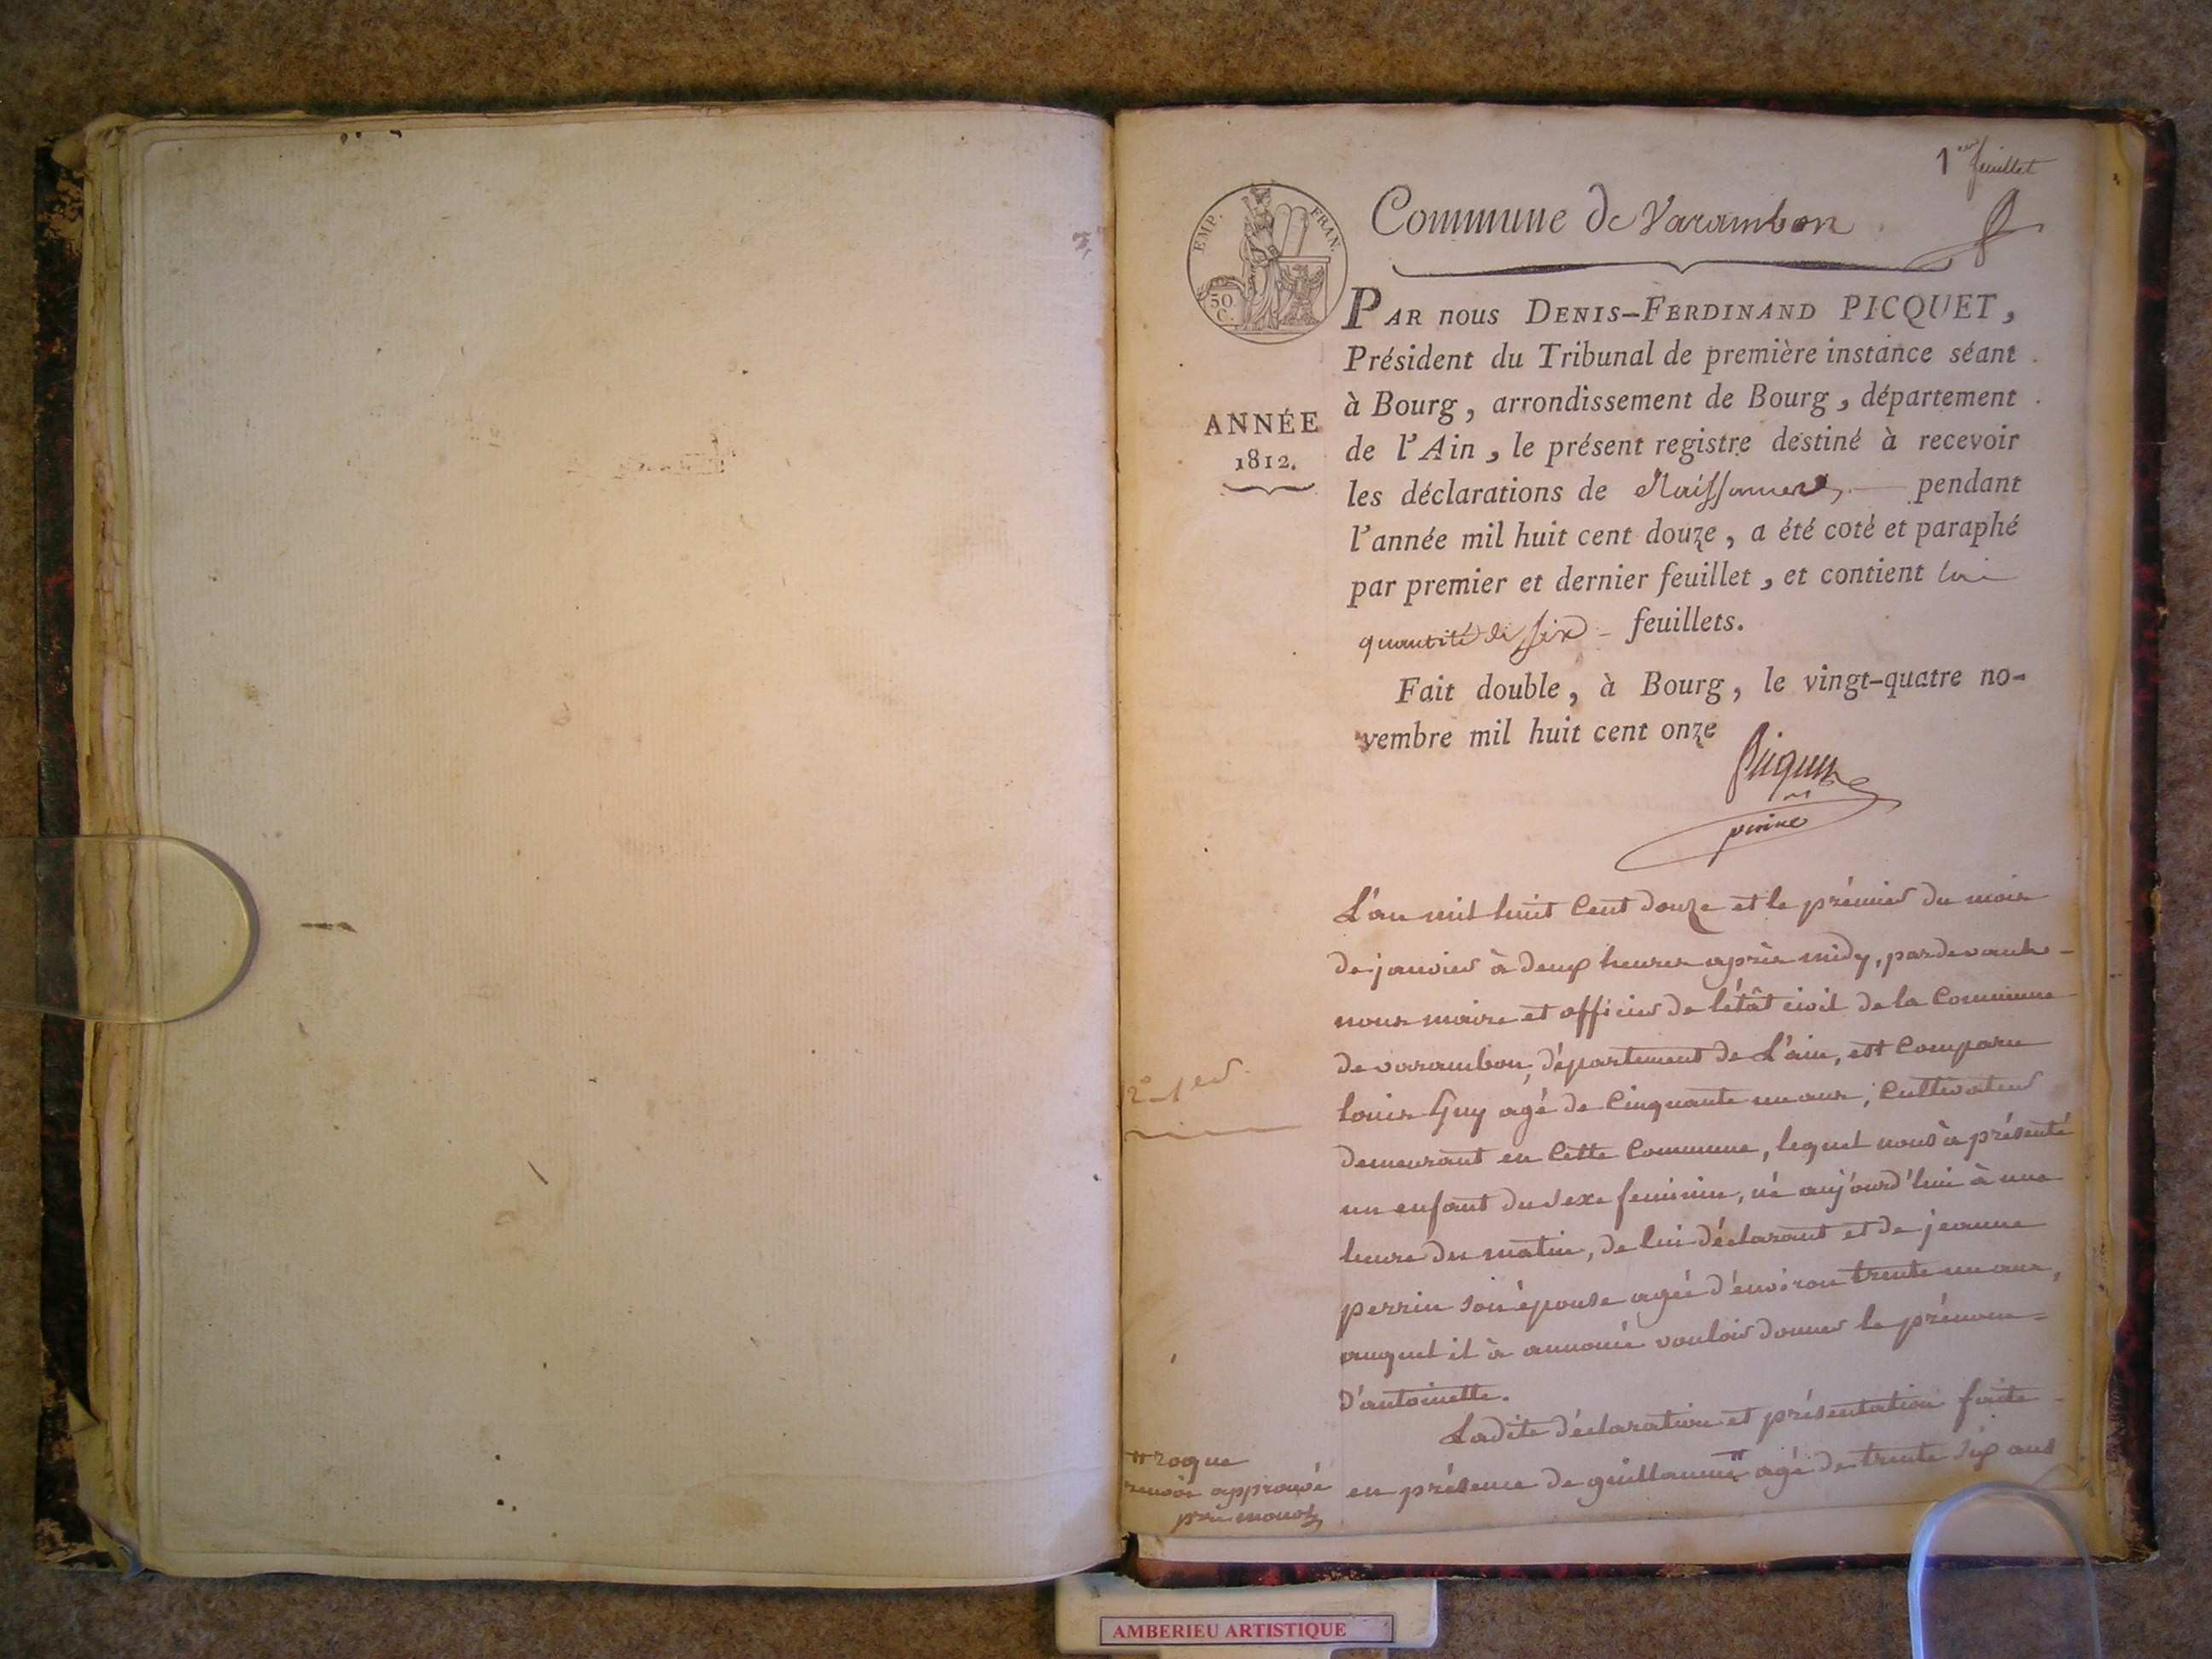 1er feuillet
EMP. FRAN.
50 C.
Commune de Varambon
PAR nous DENIS-FERDINAND PICQUET,
Président du Tribunal de première instance séant
à Bourg, arrondissement de Bourg, département
de l'Ain, le présent registre destiné à recevoir
les déclarations de Naissances, pendant
l'année mil huit cent douze, a été coté et paraphé
par premier et dernier feuillet, et contient la
quantité de six feuillets.
Fait double, à Bourg, le vingt-quatre no-
vembre mil huit cent onze
ANNÉE
1812.
Picquet
L'an mil huit Cent douze et le prémier du mois
de janvier à deux heures après midy, pardevant
nous maire et officier de létât civil de la Commune
de varambon, département de L'ain, est Comparu
louis Guy agé de Cinquante un ans, Cultivateur
demeurant en Cette Commune, lequel nous à présenté
un enfant du sexe feminin, né aujourd'hui à une
heure du matin, de lui déclarant et de jeanne
perrin son épouse agée d'environ trente un ans,
auquel il à annoncé vouloir donner le prénom
D'antoinette.
Ladite déclaration et présentation faite
en présence de guillaume # agé de trente six ans
# roque
renvoi approuvé
AMBERIEU ARTISTIQUE